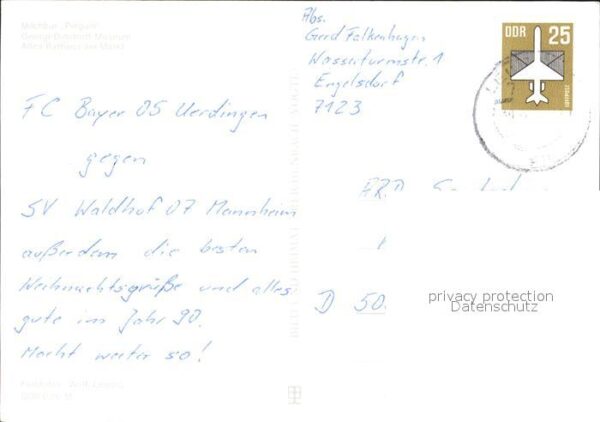 Milchbar „Pinguin"
Altes Rathaus am Markt
FC Bayer 05 Uerdingen
gegen
SV Waldhof 07 Mannheim
außerdem die besten
Weihnachtsgrüße und alles
gute im Jahr 90.
Macht weiter so!
Abs.
Gerd Falkenhagen
Wasserturmstr. 1
Engelsdorf
7123
DDR 25
LUFTPOST
ARD
D 50
privacy protection
Datenschutz